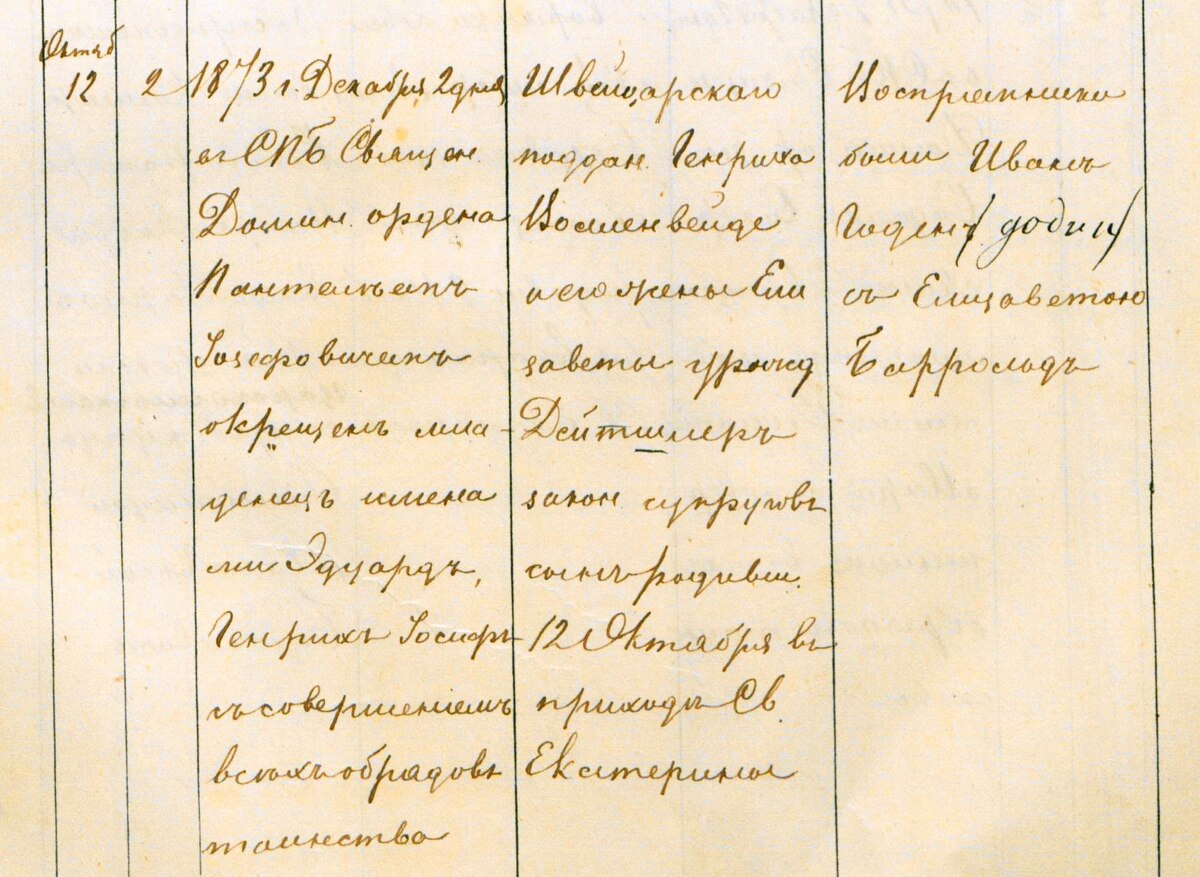 Октяб
12
2
1873 г. Декабря 2 дня
въ СПБ Священ.
Домин. ордена
Пантелѣемъ
Іозефовичемъ
окрещенъ мла-
денецъ имена
ми Эдуардъ,
Генрихъ Іосифъ
съ совершеніемъ
всѣхъ обрядовъ
таинства
Швейцарскаго
поддан. Генриха
Волленвейде
и его жены Ели
заветы урожд
Дейтшлеръ
закон. супруговъ
сынъ родивш.
12 Октября въ
приходѣ Св
Екатерины
Воспріемники
были Иванъ
Годенъ / годин /
съ Елизаветою
Баррольдъ